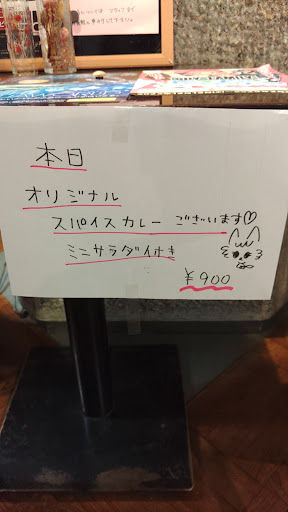 本日
オリジナル
スパイスカレー ございます♡
ミニサラダ付き
¥900